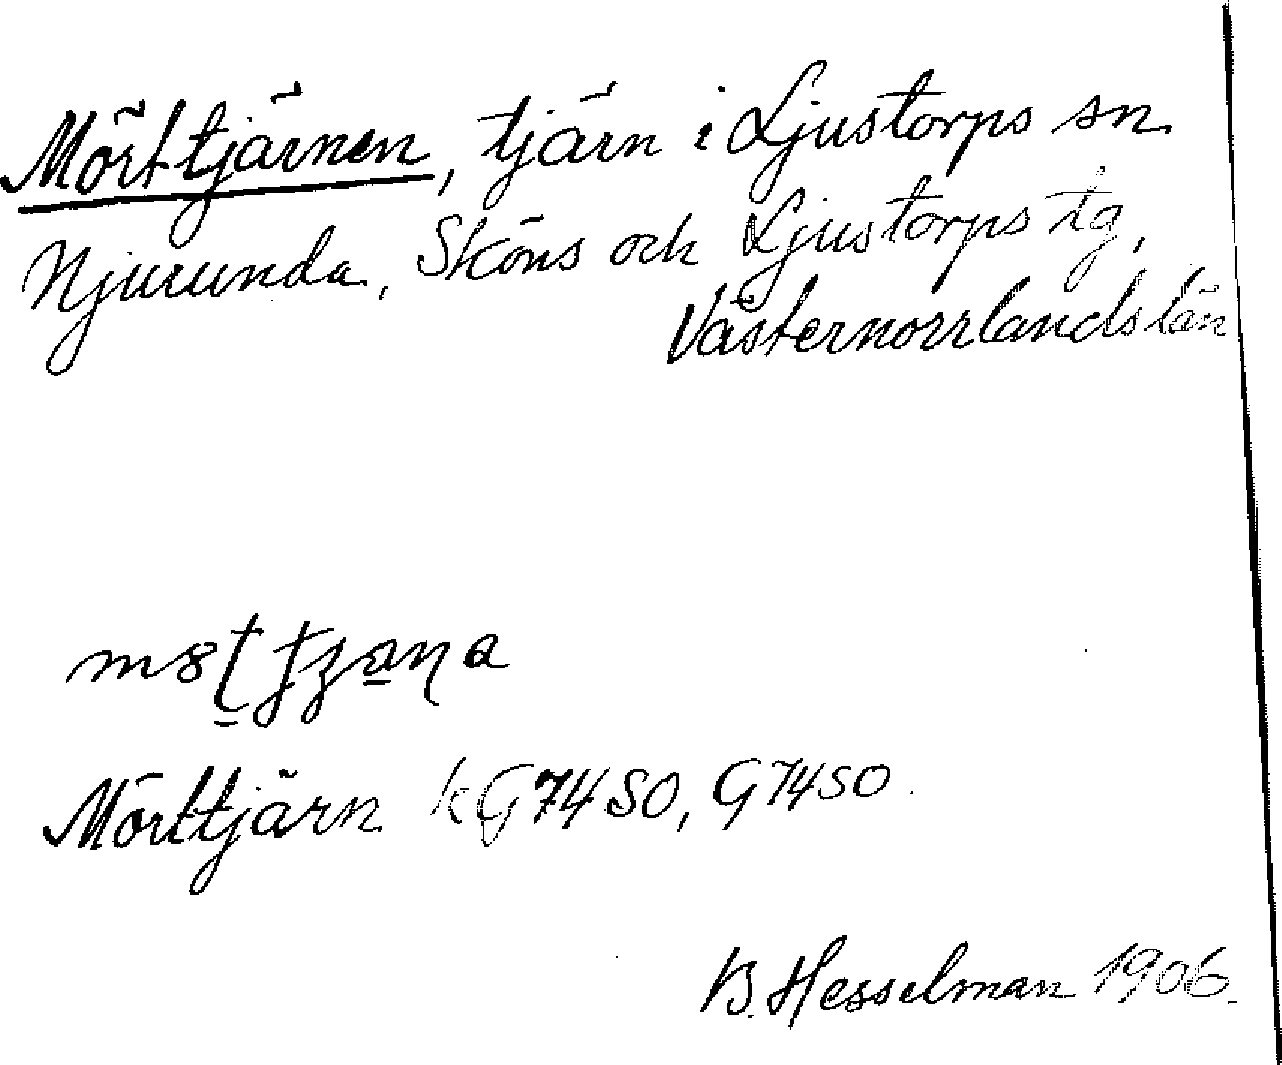 Mörttjärnen, tjärn i Ljustorps sn
Njurunda, Sköns och Ljustorps tg,
Västernorrlands län
Mörttjärn kG74SO, G74SO.
B. Hesselman 1906.